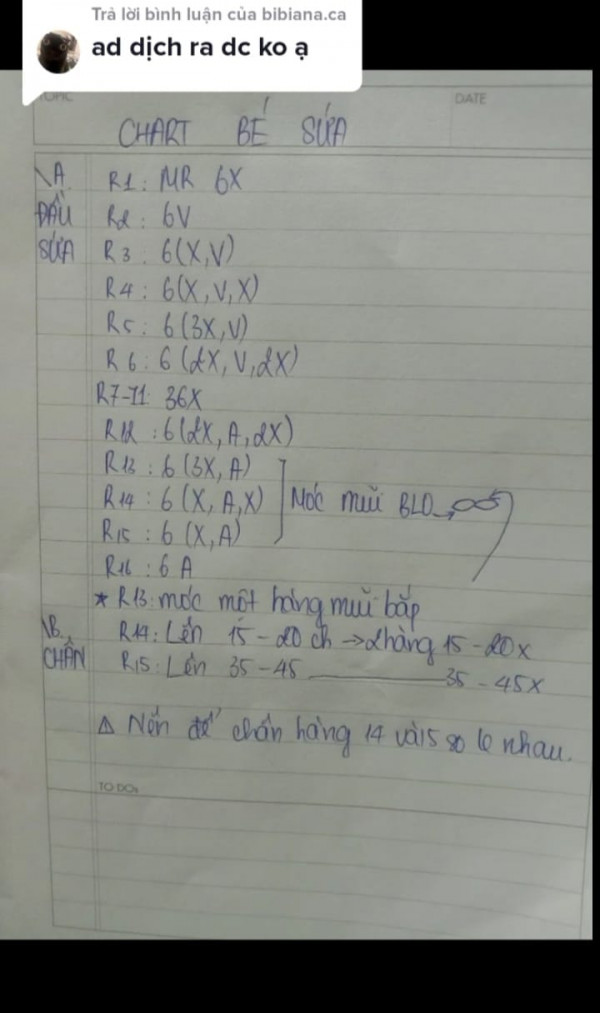 Trả lời bình luận của bibiana.ca
ad dịch ra dc ko ạ
DATE
CHART BÉ SỨA
A. ĐẦU SỨA
R1: MR 6X
R2: 6V
R3: 6(X,V)
R4: 6(X,V,X)
R5: 6(3X,V)
R6: 6(2X,V,2X)
R7-11: 36X
R12: 6(2X,A,2X)
R13: 6(3X,A)
R14: 6(X,A,X)
R15: 6(X,A)
Móc mũi BLO
R16: 6A
* R13: móc một hàng mũi bắp
B. CHÂN
R14: Lên 15-20 ch → 2 hàng 15-20x
R15: Lên 35-45 ――― 35-45X
△ Nên để chân hàng 14 và 15 so le nhau.
TO DO: